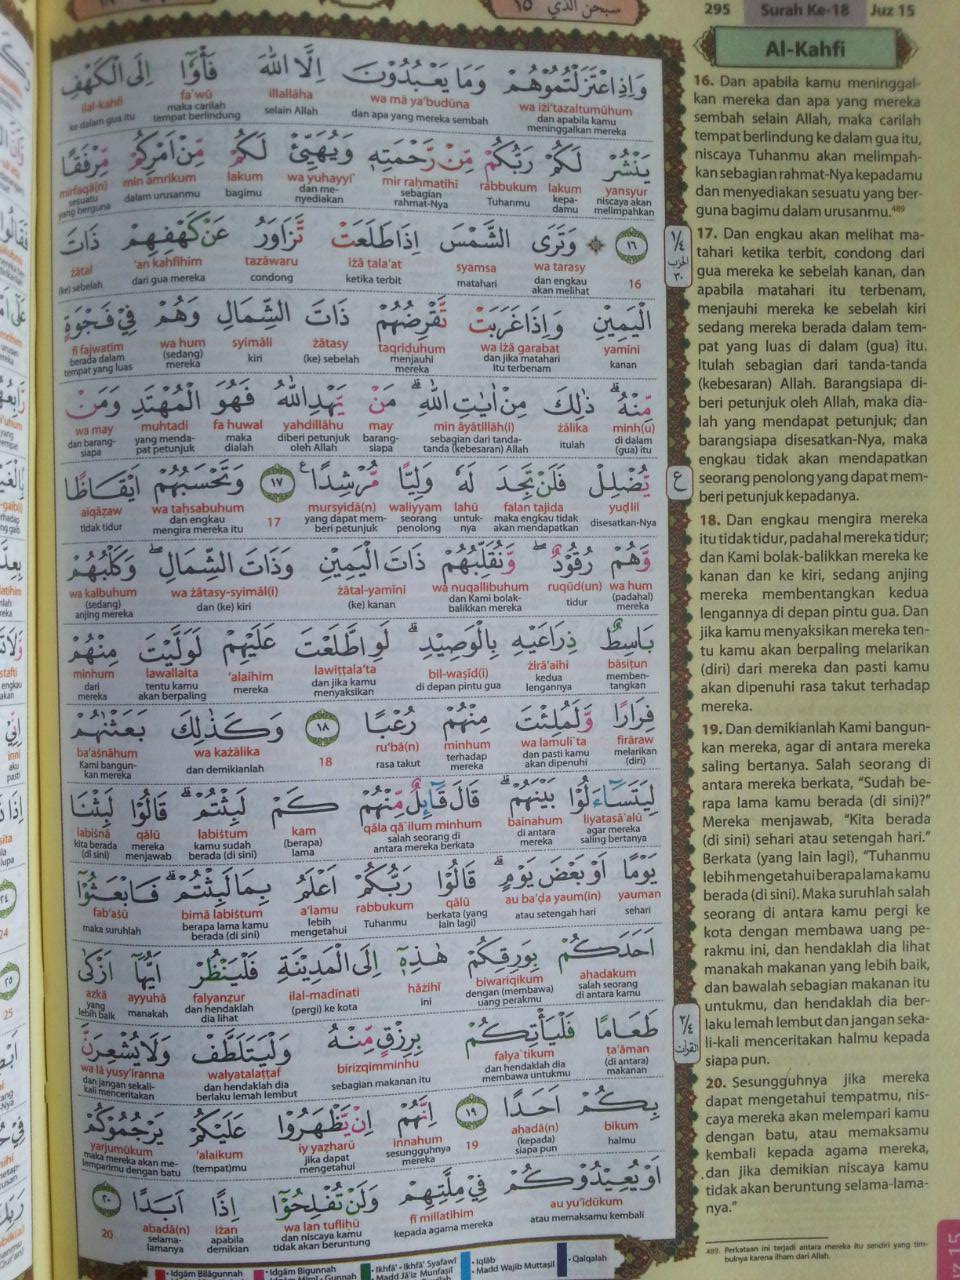 سبحن الذي ١٥
295 Surah Ke-18 Juz 15
Al-Kahfi
وَاِذِ اعْتَزَلْتُمُوْهُمْ وَمَا يَعْبُدُوْنَ اِلَّا اللّٰهَ فَأْوٗٓا اِلَى الْكَهْفِ
wa iżi'tazaltumūhum wa mā ya'budūna illallāha fa'wū ilal-kahfi
dan apabila kamu meninggalkan mereka dan apa yang mereka sembah selain Allah maka carilah tempat berlindung ke dalam gua itu
يَنْشُرْ لَكُمْ رَبُّكُمْ مِّنْ رَّحْمَتِهٖ وَيُهَيِّئْ لَكُمْ مِّنْ اَمْرِكُمْ مِّرْفَقًا
yansyur lakum rabbukum mir raḥmatihī wa yuhayyi' lakum min amrikum mirfaqā(n)
niscaya akan melimpahkan kepadamu Tuhanmu sebagian rahmat-Nya dan menyediakan bagimu dalam urusanmu sesuatu yang berguna
١٦ ۞ وَتَرَى الشَّمْسَ اِذَا طَلَعَتْ تَّزَاوَرُ عَنْ كَهْفِهِمْ ذَاتَ
16 wa tarasy syamsa iżā ṭala'at tazāwaru 'an kahfihim żātal
dan engkau akan melihat matahari ketika terbit condong dari gua mereka (ke) sebelah
الْيَمِيْنِ وَاِذَا غَرَبَتْ تَّقْرِضُهُمْ ذَاتَ الشِّمَالِ وَهُمْ فِيْ فَجْوَةٍ
yamīni wa iżā garabat taqriḍuhum żātasy syimāli wa hum fī fajwatim
kanan dan jika matahari itu terbenam menjauhi mereka (ke) sebelah kiri (sedang) mereka berada dalam tempat yang luas
مِّنْهُ ۗ ذٰلِكَ مِنْ اٰيٰتِ اللّٰهِ ۗ مَنْ يَّهْدِ اللّٰهُ فَهُوَ الْمُهْتَدِ وَمَنْ
minh(u) żālika min āyātillāh(i) may yahdillāhu fa huwal muhtadi wa may
di dalam (gua) itu itulah sebagian dari tanda-tanda (kebesaran) Allah barangsiapa diberi petunjuk oleh Allah maka dialah yang mendapat petunjuk dan barangsiapa
يُّضْلِلْ فَلَنْ تَجِدَ لَهٗ وَلِيًّا مُّرْشِدًا ࣖ ١٧ وَتَحْسَبُهُمْ اَيْقَاظًا
yuḍlil falan tajida lahū waliyyam mursyidā(n) 17 wa taḥsabuhum aiqāẓaw
disesatkan-Nya maka engkau tidak akan mendapatkan untuknya seorang penolong yang dapat memberi petunjuk dan engkau mengira mereka itu tidak tidur
وَّهُمْ رُقُوْدٌ ۖ وَّنُقَلِّبُهُمْ ذَاتَ الْيَمِيْنِ وَذَاتَ الشِّمَالِ ۖ وَكَلْبُهُمْ
wa hum ruqūd(un) wa nuqallibuhum żātal-yamīni wa żātasy-syimāl(i) wa kalbuhum
(padahal) mereka tidur dan Kami bolak-balikkan mereka (ke) kanan dan (ke) kiri (sedang) anjing mereka
بَاسِطٌ ذِرَاعَيْهِ بِالْوَصِيْدِ ۗ لَوِ اطَّلَعْتَ عَلَيْهِمْ لَوَلَّيْتَ مِنْهُمْ
bāsiṭun żirā'aihi bil-waṣīd(i) lawiṭṭala'ta 'alaihim lawallaita minhum
membentangkan kedua lengannya di depan pintu gua dan jika kamu menyaksikan mereka tentu kamu akan berpaling dari mereka
فِرَارًا وَّلَمُلِئْتَ مِنْهُمْ رُعْبًا ١٨ وَكَذٰلِكَ بَعَثْنٰهُمْ
firāraw wa lamuli'ta minhum ru'bā(n) 18 wa każālika ba'aśnāhum
melarikan (diri) dan pasti kamu akan dipenuhi terhadap mereka rasa takut dan demikianlah Kami bangunkan mereka
لِيَتَسَاۤءَلُوْا بَيْنَهُمْ ۗ قَالَ قَاۤىِٕلٌ مِّنْهُمْ كَمْ لَبِثْتُمْ ۗ قَالُوْا لَبِثْنَا
liyatasā'alū bainahum qāla qā'ilum minhum kam labiśtum qālū labiśnā
agar mereka saling bertanya di antara mereka salah seorang di antara mereka berkata (berapa) lama kamu sudah berada (di sini) mereka menjawab kita berada (di sini)
يَوْمًا اَوْ بَعْضَ يَوْمٍ ۗ قَالُوْا رَبُّكُمْ اَعْلَمُ بِمَا لَبِثْتُمْ ۗ فَابْعَثُوْٓا
yauman au ba'ḍa yaum(in) qālū rabbukum a'lamu bimā labiśtum fab'aśū
sehari atau setengah hari berkata (yang lain lagi) Tuhanmu lebih mengetahui berapa lama kamu berada (di sini) maka suruhlah
اَحَدَكُمْ بِوَرِقِكُمْ هٰذِهٖٓ اِلَى الْمَدِيْنَةِ فَلْيَنْظُرْ اَيُّهَآ اَزْكٰى
aḥadakum biwariqikum hāżihī ilal-madīnati falyanẓur ayyuhā azkā
salah seorang di antara kamu dengan (membawa) uang perakmu ini (pergi) ke kota dan hendaklah dia lihat manakah yang lebih baik
طَعَامًا فَلْيَأْتِكُمْ بِرِزْقٍ مِّنْهُ وَلْيَتَلَطَّفْ وَلَا يُشْعِرَنَّ
ṭa'āman falya'tikum birizqimminhu walyatalaṭṭaf wa lā yusy'iranna
(di antara) makanan dan hendaklah dia membawa untukmu sebagian makanan itu dan hendaklah dia berlaku lemah lembut dan jangan sekali-kali menceritakan
بِكُمْ اَحَدًا ١٩ اِنَّهُمْ اِنْ يَّظْهَرُوْا عَلَيْكُمْ يَرْجُمُوْكُمْ
bikum aḥadā(n) 19 innahum iy yaẓharū 'alaikum yarjumūkum
halmu (kepada) siapa pun sesungguhnya mereka jika dapat mengetahui (tempat)mu maka mereka akan melemparimu dengan batu
اَوْ يُعِيْدُوْكُمْ فِيْ مِلَّتِهِمْ وَلَنْ تُفْلِحُوْٓا اِذًا اَبَدًا ٢٠
au yu'īdūkum fī millatihim wa lan tufliḥū iżan abadā(n) 20
atau memaksamu kembali kepada agama mereka dan niscaya kamu tidak akan beruntung apabila demikian selama-lamanya
16. Dan apabila kamu meninggal-
kan mereka dan apa yang mereka
sembah selain Allah, maka carilah
tempat berlindung ke dalam gua itu,
niscaya Tuhanmu akan melimpah-
kan sebagian rahmat-Nya kepadamu
dan menyediakan sesuatu yang ber-
guna bagimu dalam urusanmu.489
17. Dan engkau akan melihat ma-
tahari ketika terbit, condong dari
gua mereka ke sebelah kanan, dan
apabila matahari itu terbenam,
menjauhi mereka ke sebelah kiri
sedang mereka berada dalam tem-
pat yang luas di dalam (gua) itu.
Itulah sebagian dari tanda-tanda
(kebesaran) Allah. Barangsiapa di-
beri petunjuk oleh Allah, maka dia-
lah yang mendapat petunjuk; dan
barangsiapa disesatkan-Nya, maka
engkau tidak akan mendapatkan
seorang penolong yang dapat mem-
beri petunjuk kepadanya.
18. Dan engkau mengira mereka
itu tidak tidur, padahal mereka tidur;
dan Kami bolak-balikkan mereka ke
kanan dan ke kiri, sedang anjing
mereka membentangkan kedua
lengannya di depan pintu gua. Dan
jika kamu menyaksikan mereka ten-
tu kamu akan berpaling melarikan
(diri) dari mereka dan pasti kamu
akan dipenuhi rasa takut terhadap
mereka.
19. Dan demikianlah Kami bangun-
kan mereka, agar di antara mereka
saling bertanya. Salah seorang di
antara mereka berkata, "Sudah be-
rapa lama kamu berada (di sini)?"
Mereka menjawab, "Kita berada
(di sini) sehari atau setengah hari."
Berkata (yang lain lagi), "Tuhanmu
lebih mengetahui berapa lama kamu
berada (di sini). Maka suruhlah salah
seorang di antara kamu pergi ke
kota dengan membawa uang pe-
rakmu ini, dan hendaklah dia lihat
manakah makanan yang lebih baik,
dan bawalah sebagian makanan itu
untukmu, dan hendaklah dia ber-
laku lemah lembut dan jangan seka-
li-kali menceritakan halmu kepada
siapa pun.
20. Sesungguhnya jika mereka
dapat mengetahui tempatmu, nis-
caya mereka akan melempari kamu
dengan batu, atau memaksamu
kembali kepada agama mereka,
dan jika demikian niscaya kamu
tidak akan beruntung selama-lama-
nya."
489. Perkataan ini terjadi antara mereka itu sendiri yang tim-
bulnya karena ilham dari Allah.
• Idgām Bilāgunnah • Idgām Bigunnah • Ikhfā' • Ikhfā' Syafawī • Iqlāb • Qalqalah
• Madd Jā'iz Munfaṣil • Madd Wajib Muttaṣil